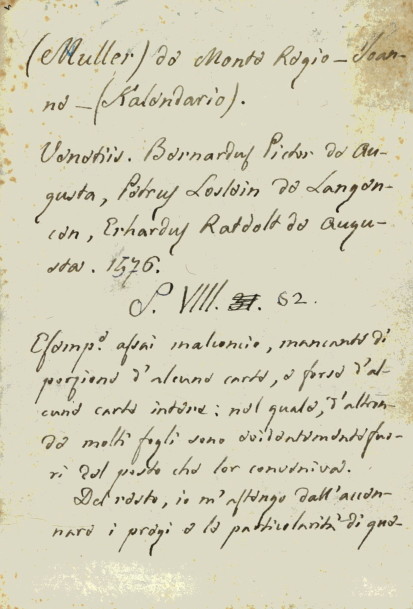 (Muller) da Monte Regio – Joan-
ne – (Kalendario).
Venetiis. Bernardus Pictor de Au-
gusta, Petrus Loslein de Langen-
cen, Erhardus Ratdolt de Augu-
sta. 1576.
S. VIII. 82.
Esemp.º assai malconcio, mancante di
porzione d'alcune carte, e forse d'al-
cune carte intere: nel quale, d'altron-
de molti fogli sono evidentemente fuo-
ri del posto che lor conveniva.
Del resto, io m'astengo dall'accen-
nare i pregi e le particolarità di que-